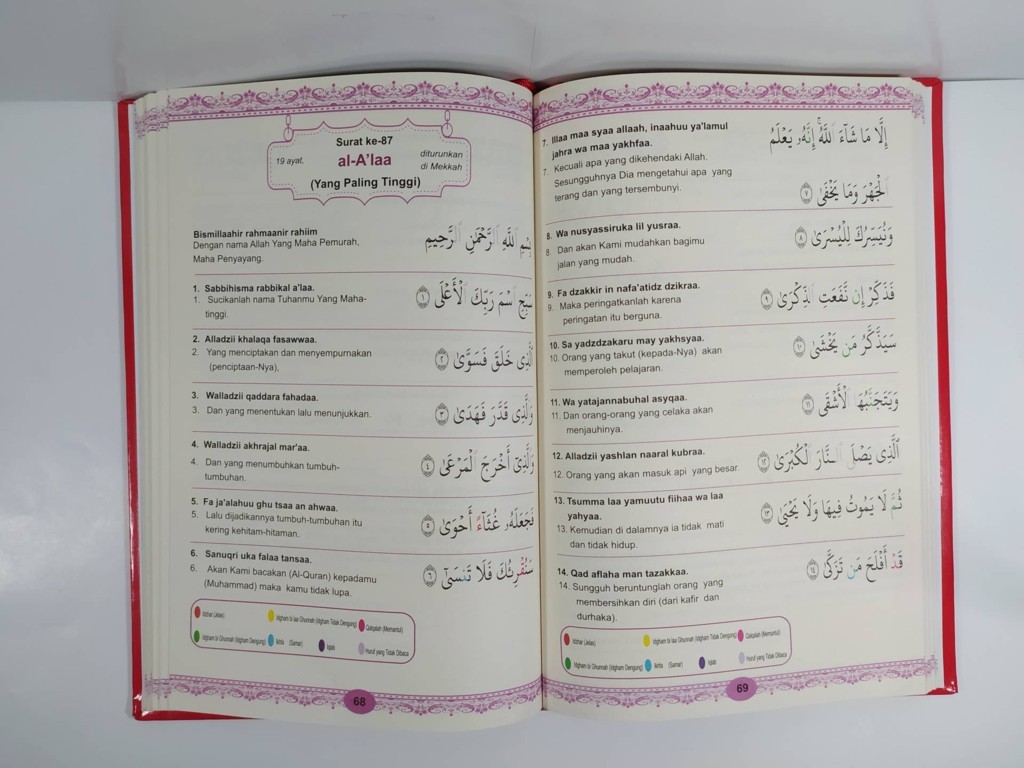 Surat ke-87
19 ayat,
al-A'laa
diturunkan
di Mekkah
(Yang Paling Tinggi)
Bismillaahir rahmaanir rahiim
Dengan nama Allah Yang Maha Pemurah,
Maha Penyayang.
بِسْمِ اللَّهِ الرَّحْمَٰنِ الرَّحِيمِ
1. Sabbihisma rabbikal a'laa.
1. Sucikanlah nama Tuhanmu Yang Maha-
tinggi.
سَبِّحِ اسْمَ رَبِّكَ الْأَعْلَى ١
2. Alladzii khalaqa fasawwaa.
2. Yang menciptakan dan menyempurnakan
(penciptaan-Nya),
الَّذِي خَلَقَ فَسَوَّىٰ ٢
3. Walladzii qaddara fahadaa.
3. Dan yang menentukan lalu menunjukkan.
وَالَّذِي قَدَّرَ فَهَدَىٰ ٣
4. Walladzii akhrajal mar'aa.
4. Dan yang menumbuhkan tumbuh-
tumbuhan.
وَالَّذِيٓ أَخْرَجَ الْمَرْعَىٰ ٤
5. Fa ja'alahuu ghu tsaa an ahwaa.
5. Lalu dijadikannya tumbuh-tumbuhan itu
kering kehitam-hitaman.
فَجَعَلَهُۥ غُثَآءً أَحْوَىٰ ٥
6. Sanuqri uka falaa tansaa.
6. Akan Kami bacakan (Al-Quran) kepadamu
(Muhammad) maka kamu tidak lupa.
سَنُقْرِئُكَ فَلَا تَنسَىٰٓ ٦
Idzhar (Jelas)
Idgham bi laa Ghunnah (Idgham Tidak Dengung)
Qalqalah (Memantul)
Idgham bi Ghunnah (Idgham Dengung)
Ikhfa (Samar)
Iqlab
Huruf yang Tidak Dibaca
68
7. Illaa maa syaa allaah, inaahuu ya'lamul
jahra wa maa yakhfaa.
7. Kecuali apa yang dikehendaki Allah.
Sesungguhnya Dia mengetahui apa yang
terang dan yang tersembunyi.
إِلَّا مَا شَآءَ اللَّهُ ۚ إِنَّهُۥ يَعْلَمُ
الْجَهْرَ وَمَا يَخْفَىٰ ٧
8. Wa nusyassiruka lil yusraa.
8. Dan akan Kami mudahkan bagimu
jalan yang mudah.
وَنُيَسِّرُكَ لِلْيُسْرَىٰ ٨
9. Fa dzakkir in nafa'atidz dzikraa.
9. Maka peringatkanlah karena
peringatan itu berguna.
فَذَكِّرْ إِن نَّفَعَتِ الذِّكْرَىٰ ٩
10. Sa yadzdzakaru may yakhsyaa.
10. Orang yang takut (kepada-Nya) akan
memperoleh pelajaran.
سَيَذَّكَّرُ مَن يَخْشَىٰ ١٠
11. Wa yatajannabuhal asyqaa.
11. Dan orang-orang yang celaka akan
menjauhinya.
وَيَتَجَنَّبُهَا الْأَشْقَى ١١
12. Alladzii yashlan naaral kubraa.
12. Orang yang akan masuk api yang besar.
الَّذِي يَصْلَى النَّارَ الْكُبْرَىٰ ١٢
13. Tsumma laa yamuutu fiihaa wa laa
yahyaa.
13. Kemudian di dalamnya ia tidak mati
dan tidak hidup.
ثُمَّ لَا يَمُوتُ فِيهَا وَلَا يَحْيَىٰ ١٣
14. Qad aflaha man tazakkaa.
14. Sungguh beruntunglah orang yang
membersihkan diri (dari kafir dan
durhaka).
قَدْ أَفْلَحَ مَن تَزَكَّىٰ ١٤
Idzhar (Jelas)
Idgham bi laa Ghunnah (Idgham Tidak Dengung)
Qalqalah (Memantul)
Idgham bi Ghunnah (Idgham Dengung)
Ikhfa (Samar)
Iqlab
Huruf yang Tidak Dibaca
69